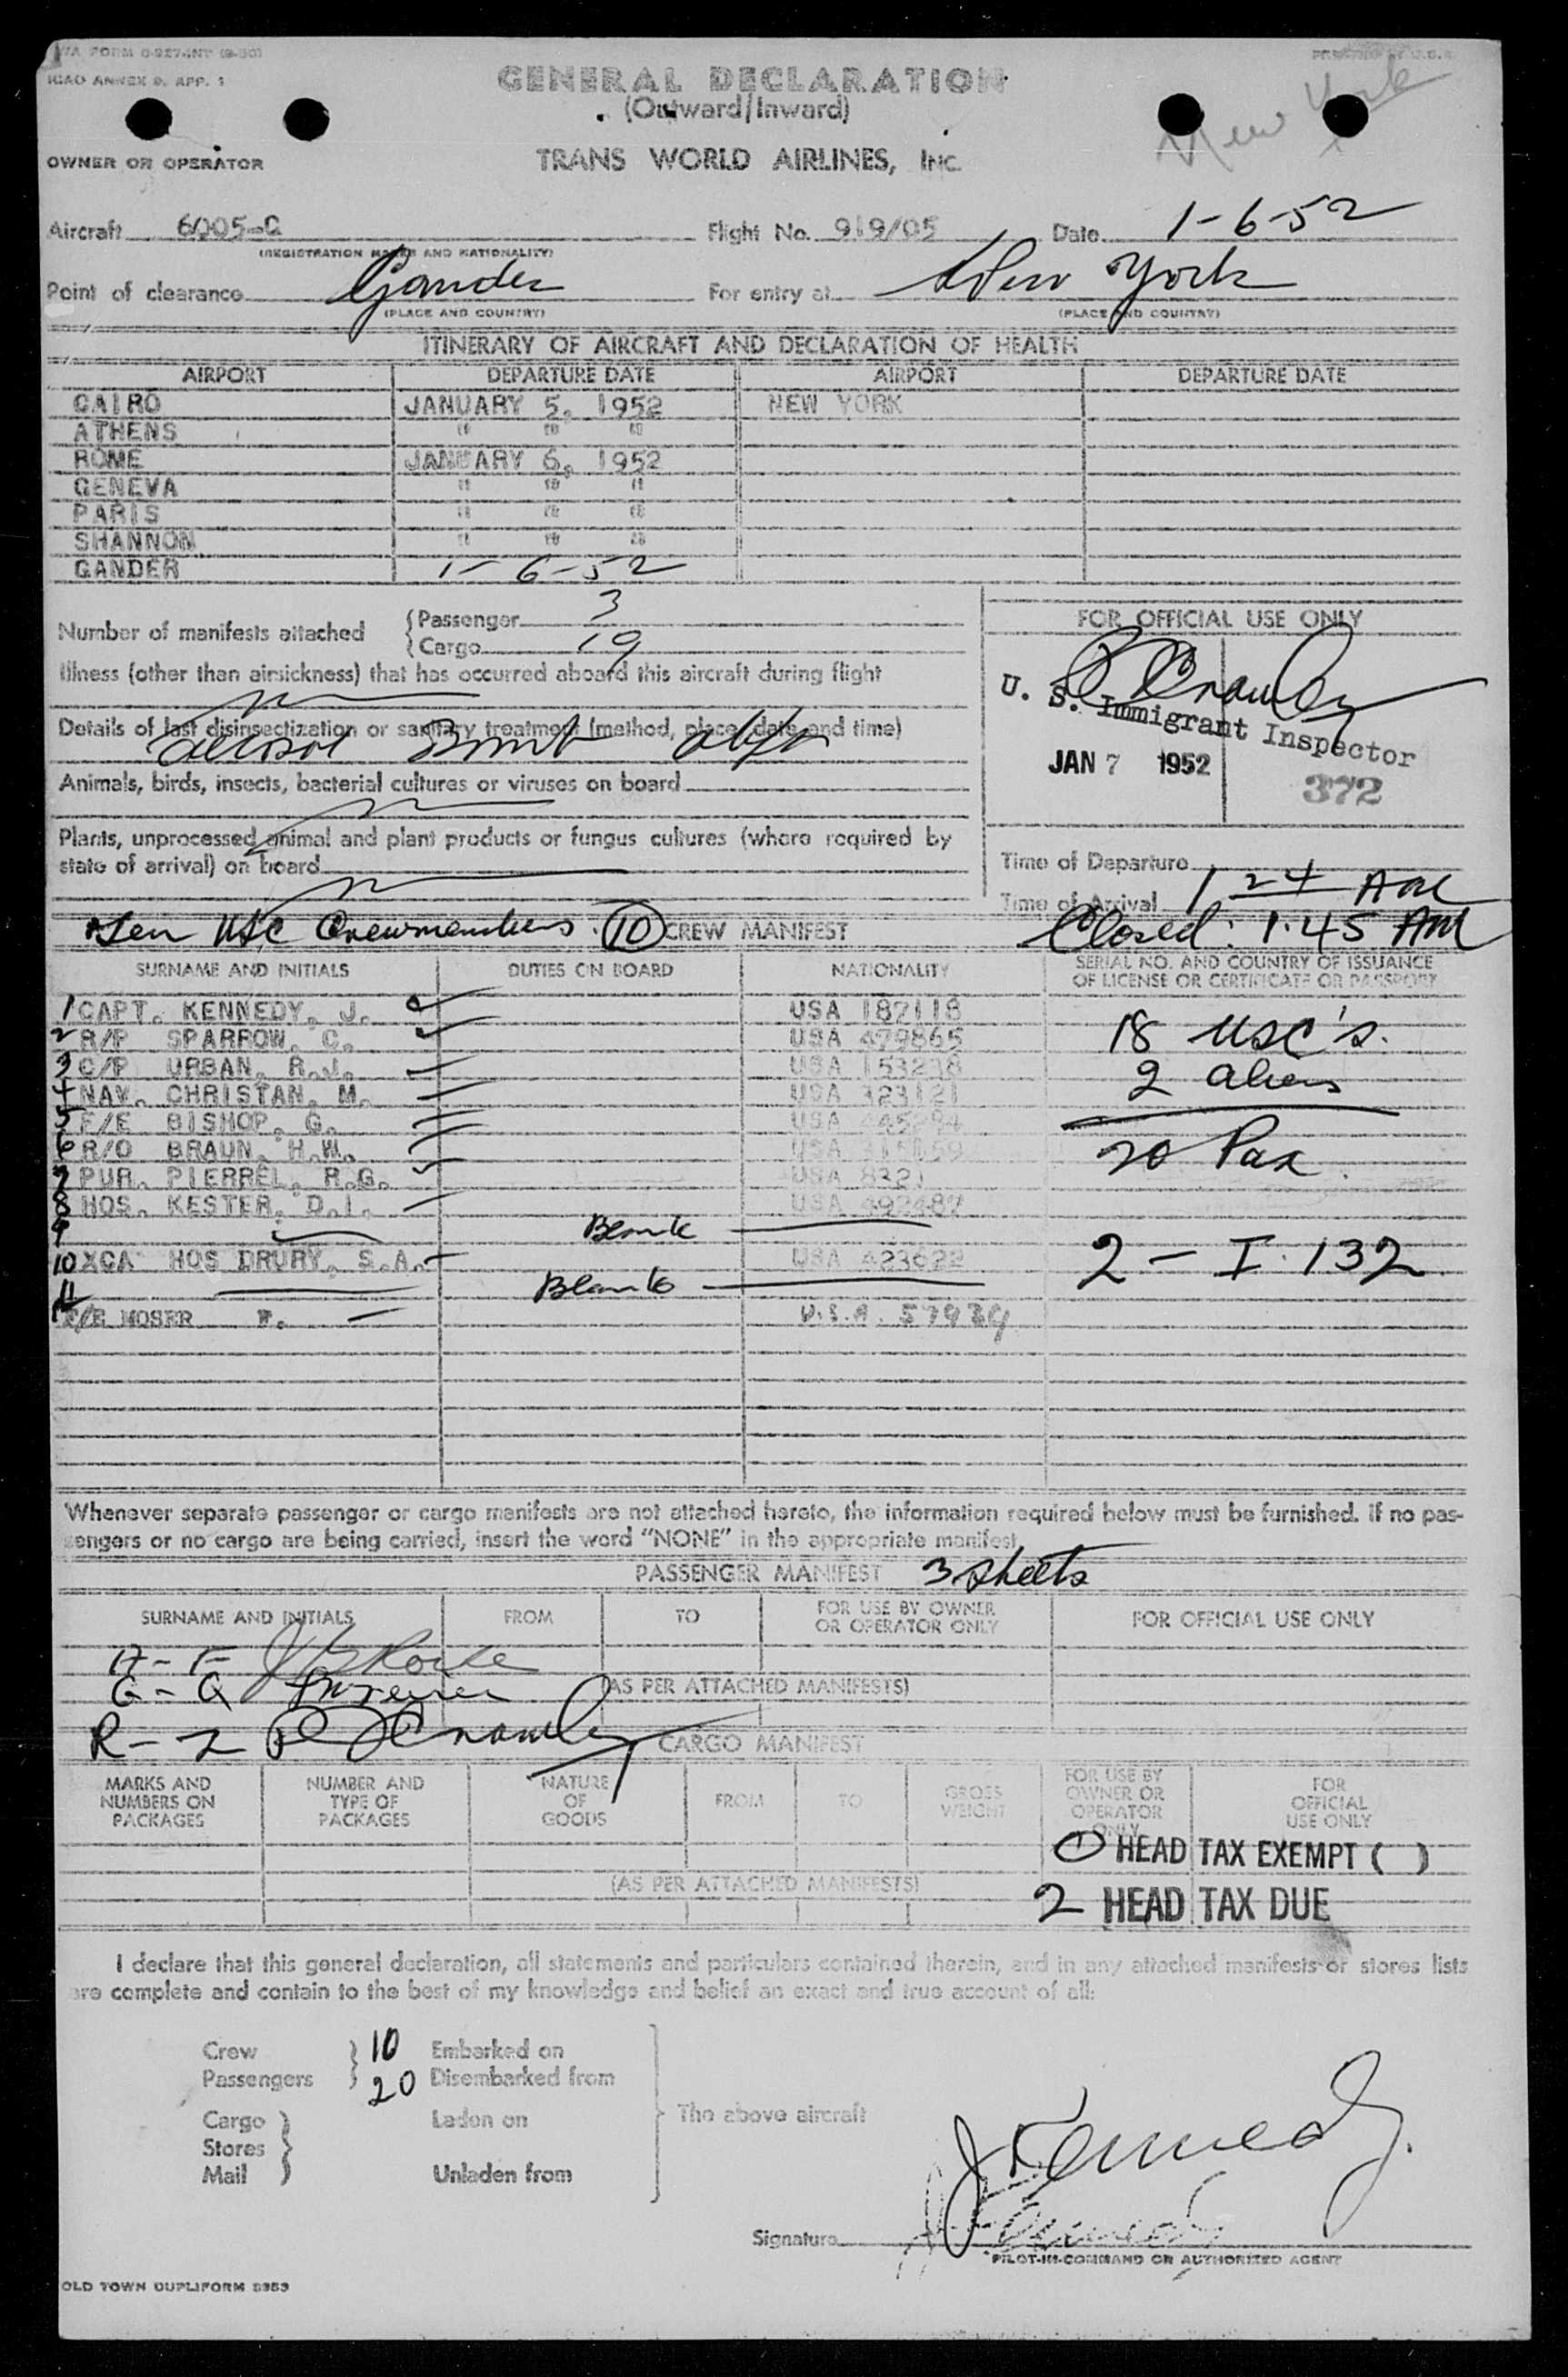 TWA FORM 0-927-INT (8-50)
ICAO ANNEX 9, APP. 1
PRINTED IN U.S.A.
GENERAL DECLARATION
(Outward/Inward)
New York
OWNER OR OPERATOR
TRANS WORLD AIRLINES, INC.
Aircraft 6005-C Flight No. 919/05 Date 1-6-52
(REGISTRATION MARKS AND NATIONALITY)
Point of clearance Gander For entry at New York
(PLACE AND COUNTRY) (PLACE AND COUNTRY)
ITINERARY OF AIRCRAFT AND DECLARATION OF HEALTH
AIRPORT DEPARTURE DATE AIRPORT DEPARTURE DATE
CAIRO JANUARY 5, 1952 NEW YORK
ATHENS " " "
ROME JANUARY 6, 1952
GENEVA " " "
PARIS " " "
SHANNON " " "
GANDER 1-6-52
Number of manifests attached
Passenger 3
Cargo 19
Illness (other than airsickness) that has occurred aboard this aircraft during flight
Details of last disinsectization or sanitary treatment (method, place, date and time)
Aerosol Bomb
Animals, birds, insects, bacterial cultures or viruses on board
Plants, unprocessed animal and plant products or fungus cultures (where required by
state of arrival) on board
FOR OFFICIAL USE ONLY
Crowley
U. S. Immigrant Inspector
JAN 7 1952
372
Time of Departure
Time of Arrival 1 24 AM
Closed: 1.45 AM
Ten USC Crewmembers. 10 CREW MANIFEST
SURNAME AND INITIALS DUTIES ON BOARD NATIONALITY SERIAL NO. AND COUNTRY OF ISSUANCE
OF LICENSE OR CERTIFICATE OR PASSPORT
1 CAPT. KENNEDY, J. USA 187118
2 R/P SPARROW, C. USA 479865
3 C/P URBAN, R.J. USA 153238
4 NAV. CHRISTAN, M. USA 323121
5 F/E BISHOP, G. USA
6 R/O BRAUN, H.W. USA
7 PUR. PIERREL, R.G. USA 8321
8 HOS. KESTER, D.I. USA 492487
9 Blank
10 XCA HOS DRURY, S.A. USA 423622
11 Blank
F/E MOSER F. U.S.A. 57939
18 USC's.
2 aliens
20 Pax.
2 - I.132
Whenever separate passenger or cargo manifests are not attached hereto, the information required below must be furnished. If no pas-
sengers or no cargo are being carried, insert the word "NONE" in the appropriate manifest.
PASSENGER MANIFEST 3 sheets
SURNAME AND INITIALS FROM TO FOR USE BY OWNER
OR OPERATOR ONLY FOR OFFICIAL USE ONLY
A - F
G - Q
(AS PER ATTACHED MANIFESTS)
R - Z Crowley
CARGO MANIFEST
MARKS AND
NUMBERS ON
PACKAGES
NUMBER AND
TYPE OF
PACKAGES
NATURE
OF
GOODS
FROM
TO
GROSS
WEIGHT
FOR USE BY
OWNER OR
OPERATOR
ONLY
FOR
OFFICIAL
USE ONLY
HEAD TAX EXEMPT ( )
(AS PER ATTACHED MANIFESTS)
2 HEAD TAX DUE
I declare that this general declaration, all statements and particulars contained therein, and in any attached manifests or stores lists
are complete and contain to the best of my knowledge and belief an exact and true account of all:
Crew 10 Embarked on
Passengers 20 Disembarked from
Cargo Laden on The above aircraft
Stores
Mail Unladen from
J Kennedy.
Signature
PILOT-IN-COMMAND OR AUTHORIZED AGENT
OLD TOWN DUPLIFORM 5953